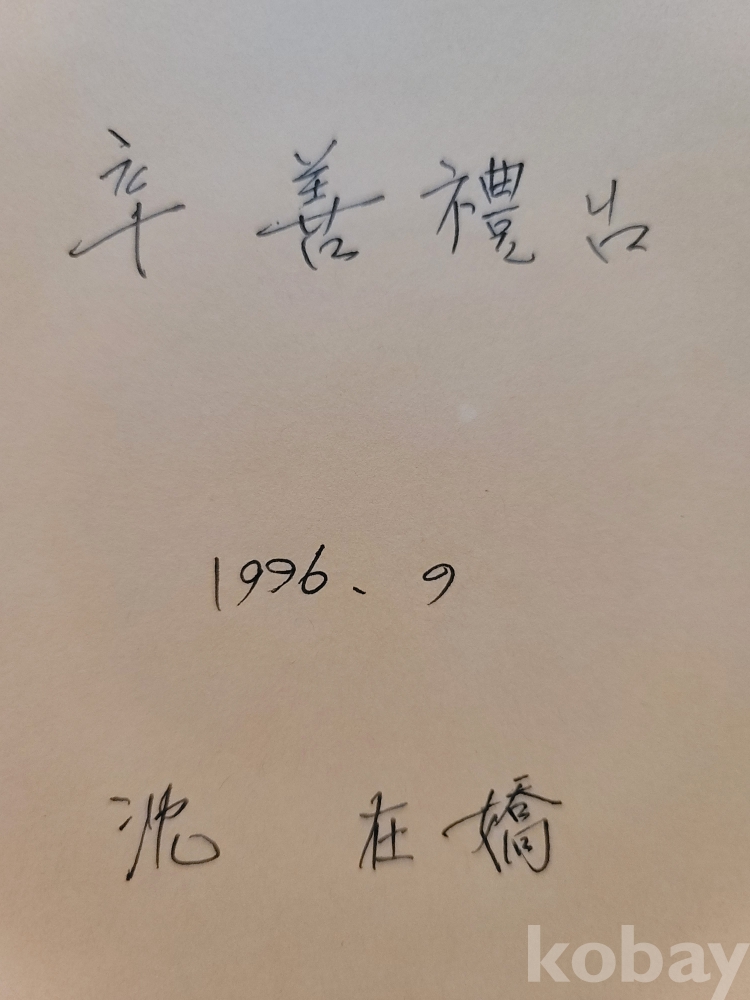 辛 善禮 님
1996、9
沈 在嬌
kobay